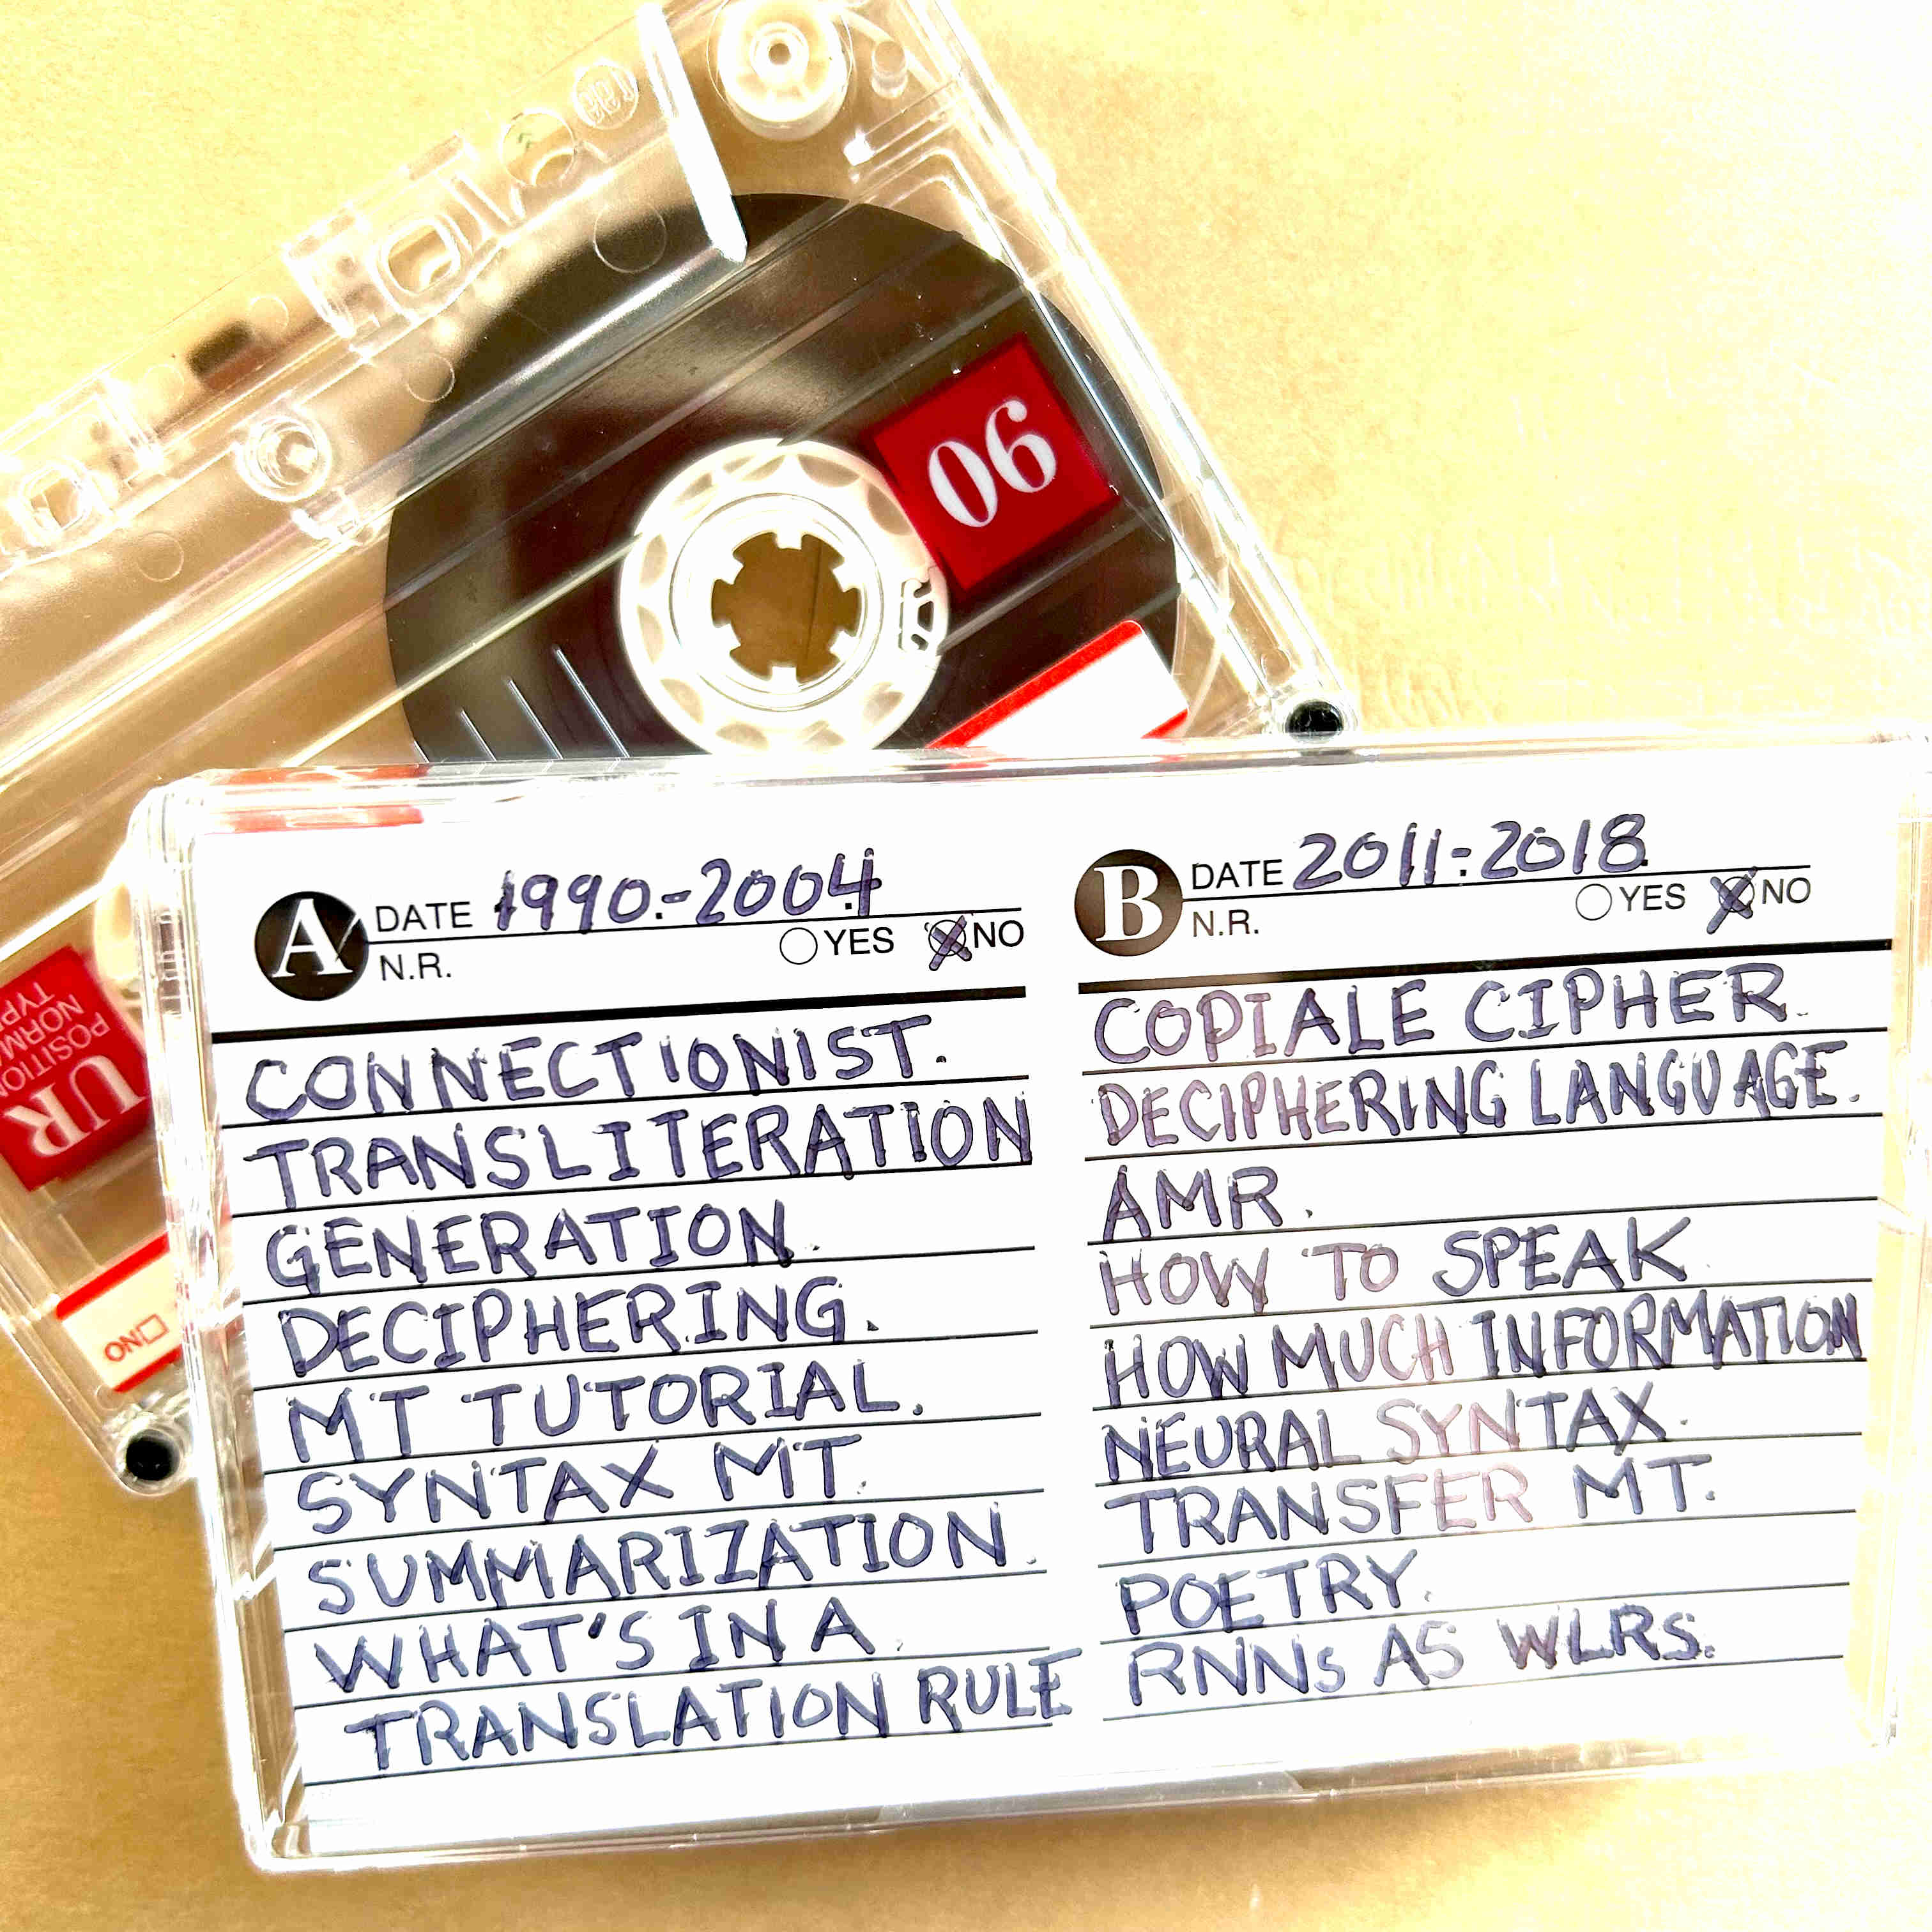 90
UR
POSITION
NORMAL
TYPE
NO
A DATE 1990.-2004.
N.R. YES NO
CONNECTIONIST.
TRANSLITERATION
GENERATION.
DECIPHERING.
MT TUTORIAL.
SYNTAX MT.
SUMMARIZATION.
WHAT'S IN A
TRANSLATION RULE
B DATE 2011-2018.
N.R. YES NO
COPIALE CIPHER.
DECIPHERING LANGUAGE.
AMR.
HOW TO SPEAK
HOW MUCH INFORMATION
NEURAL SYNTAX.
TRANSFER MT.
POETRY.
RNNs AS WLRS.